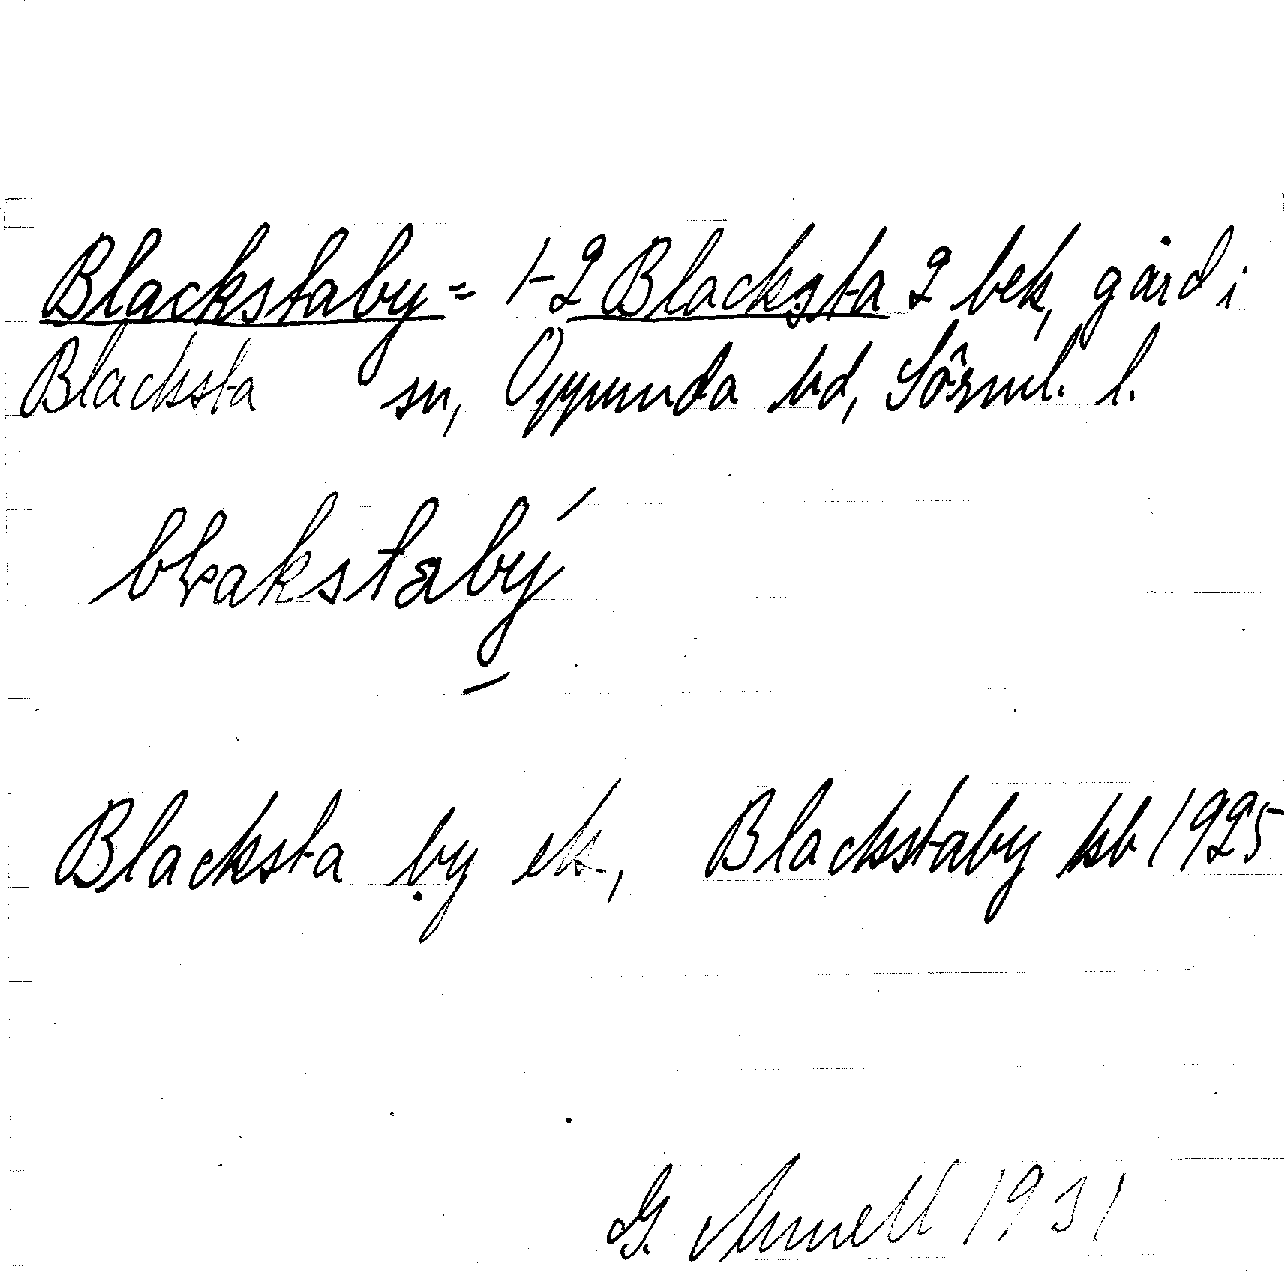 Blackstaby = 1-2 Blacksta 2 bek, gård i
Blacksta sn, Oppunda hd, Södml. l.
Blacksta by ek, Blackstaby kb 1925
G. 1931